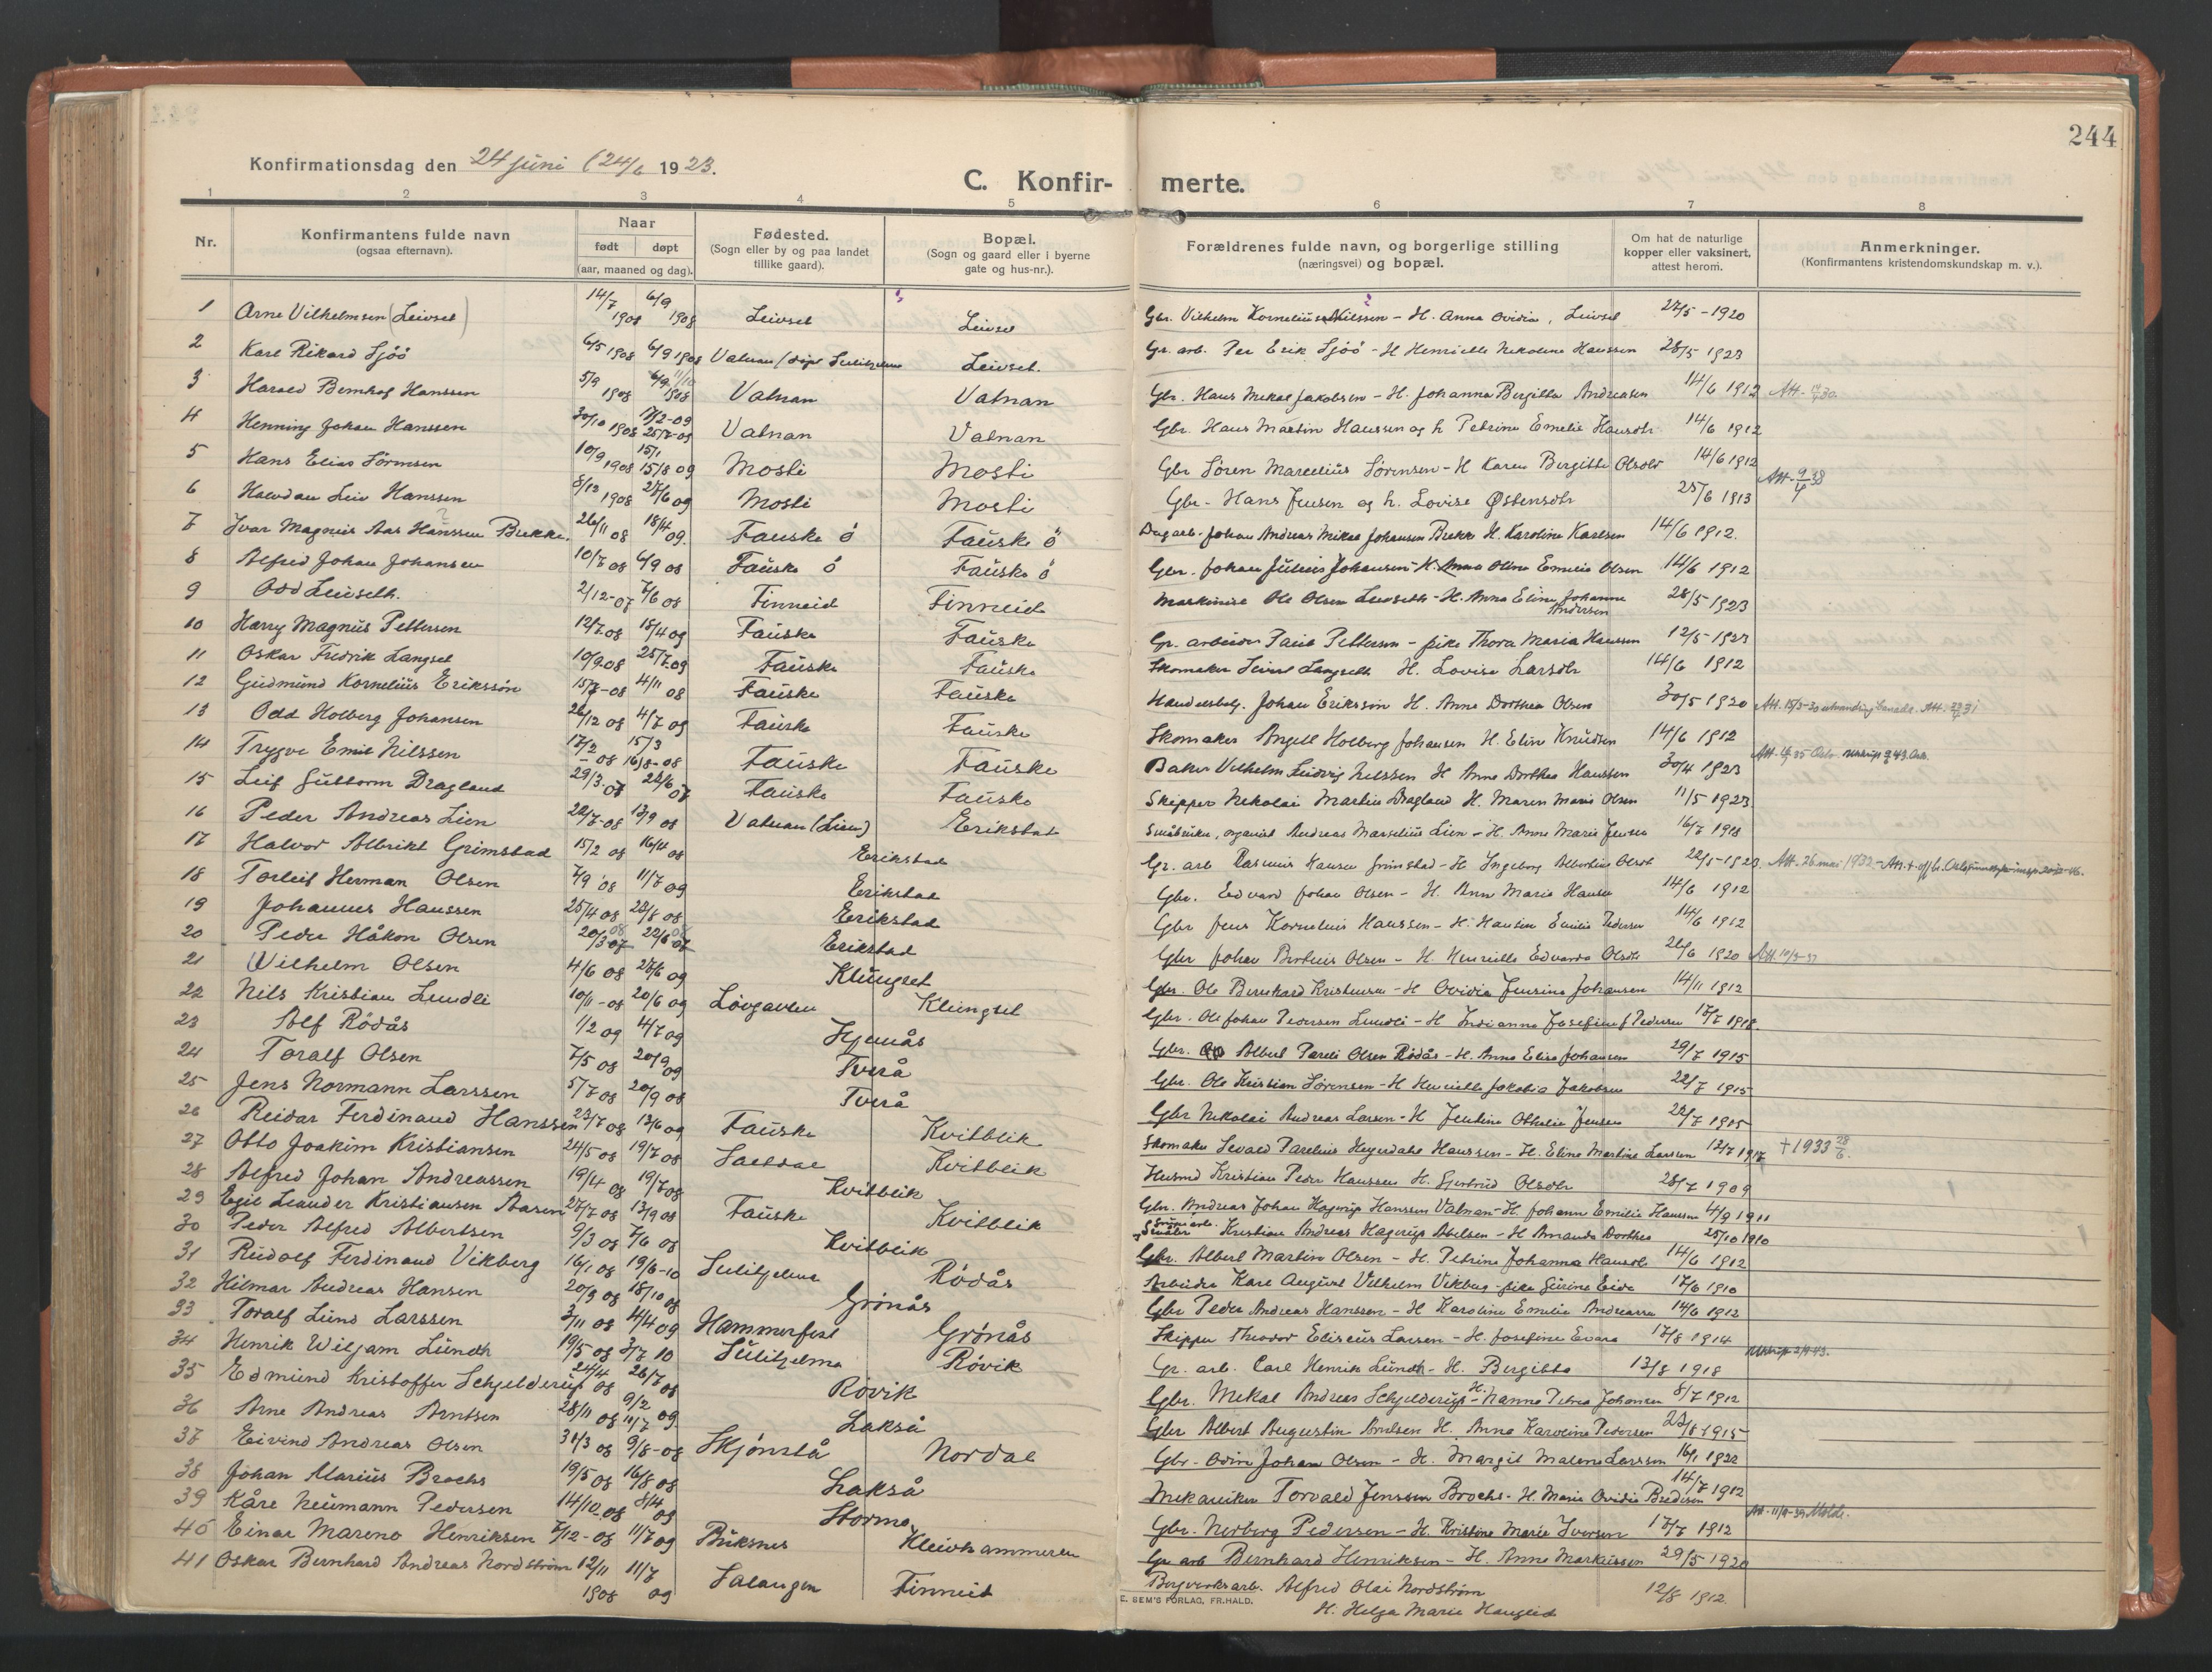 244
Konfirmationsdag den 24 juni (24/6 1923.
C. Konfir- merte.
1 2 3 4 5 6 7 8
Nr. Konfirmantens fulde navn (ogsaa efternavn). Naar født døpt (aar, maaned og dag). Fødested. (Sogn eller by og paa landet tillike gaard). Bopæl. (Sogn og gaard eller i byerne gate og hus-nr.). Forældrenes fulde navn, og borgerlige stilling (næringsvei) og bopæl. Om hat de naturlige kopper eller vaksinert, attest herom. Anmerkninger. (Konfirmantens kristendomskundskap m. v.).
1 Arne Vilhelmsen (Leivset) 14/7 1908 6/9 1908 Leivset Leivset Gbr. Vilhelm Kornelius Nilssen - H. Anna Ovidia, Leivset 27/5 - 1920
2 Karl Rikard Sjöö 6/5 1908 6/9 1908 Vatnan / døpt Sulitjelma Leivset. Gr. arb. Per Erik Sjöö - H Henriette Nekoline Hanssen 28/5 1923
3 Harald Bernhof Hanssen 5/9 1908 6/9 1908 Vatnan Vatnan Gbr. Hans Mekal Jakobsen - H. Johanna Bergitta Andreasen 14/6 1912
4 Henning Johan Hanssen 30/10 1908 25/7-09 Vatnan Vatnan Gbr. Hans Martin Hanssen og h. Petrine Emelie Hansdtr 14/6 1912
5 Hans Elias Sörensen 10/9 1908 15/1 15/8 09 Mosti Mosti Gbr Sören Marcelius Sörensen - H Karen Bergitte Olsdtr 14/6 1912
6 Halvdan Leiv Hanssen 8/12 1908 27/6 09 Mosti Mosti Gbr - Hans Jensen og h. Lovise Østensdtr 25/6 1913 Att. 9/4 38
7 Ivar Magnus Aas Hanssen Brekke. 26/11 08 18/4 09. Fauske ö Fauske ö Dagarb. Johan Andreas Mikal Johansen Brekke H. Karoline Karlsen 14/6 1912.
8 Alfred Johan Johansen 10/7 08 6/9 08 Fauske ö Fauske ö Gbr. Johan Julius Johansen - H. Anna Oline Emelie Olsen 14/6 1912
9 Odd Leivseth. 2/12-07 7/6 08 Finneid Finneid Maskinist Ole Olsen Leivseth - H. Anna Elina Johanne Andersen 28/5 1923
10 Harry Magnus Pettersen 12/7-08 18/4 09 Fauske Fauske Gr. arbeider Paul Pettersen - pike Thora Maria Hanssen 12/5 1923
11 Oskar Fredrik Langset 10/9-08 25/7-09 Fauske Fauske Skomaker Sivert Langseth H. Lovise Larsdtr 14/6 1912
12 Gudmund Kornelius Eriksson 15/7-08 4/11 08 Fauske Fauske Handelsbetj. Johan Eriksson H. Anne Dorthea Olsen 30/5 1920
13 Odd Holberg Johansen 26/12 08 4/7 09 Fauske Fauske Skomaker Angell Holberg Johansen H. Eline Knudsen 14/6 1912
14 Trygve Emil Nilssen 17/2 - 08 15/3 16/8-08 Fauske Fauske Baker Vilhelm Ludvig Nilssen H Anne Dorthea Hanssen 30/4 1923
15 Leif Guttorm Dragland 29/3-07 22/6 07 Fauske Fauske Skipper Nekolai Martin Dragland H. Maren Marie Olsen 11/5 1923
16 Peder Andreas Lien 22/7-08 13/9 08 Vatnan (Lien) Erikstad Småbruker, organist Andreas Marselius Lien - H. Anne Marie Jensen 16/7 1918
17 Halvor Albrikt Grimstad 15/2 08 16/4 08 Erikstad Gr. arb Rasmus Hansen Grimstad - H Ingeborg Albertine Olsdtr 22/5-1923 Att. 26 mai 1932
18 Torleif Herman Olsen 7/9 08 11/7 09 Erikstad Gbr. Edvard Johan Olsen - H. Ann Maria Hansen 14/6 1912
19 Johannes Hanssen 25/4 08 23/8 08 Erikstad Gbr Jens Kornelius Hanssen - H. Hansine Emilie Pedersen 14/6 1912
20 Peder Håkon Olsen 20/3 08 22/6 08 Erikstad Gbr Johan Brotnis Olsen - H. Henriette Edvarda Olsdtr 26/6 1920
21 Vilhelm Olsen 4/6 08 27/6 09 Klungset Gbr. Ole Bernhard Kristensen - H Ovidia Jensine Johansen 14/11 1912
22 Nils Kristian Lundli 10/11-08 20/6 09 Lövgavlen Klungset Gbr. Ole Johan Pedersen Lundli - H Indianna Josefine J Pedersen 17/7 1918.
23 Alf Rödås 1/2 09 4/7 09 Hjemås Gbr. Albert Pareli Olsen Rödås - H. Anna Elisa Johansen 29/7 1915
24 Toralf Olsen 7/5 08 20/9 09 Tverå Gbr. Ole Kristian Sörensen - H Henriette Jakobia Jakobsen 22/7 1915
25 Jens Normann Larssen 5/7 08 20/9 08 Tverå Gbr Nekolai Andreas Larsen - H Jentine Othelie Jensen 22/7 1915
26 Reidar Ferdinand Hanssen 23/7 08 13/6 09 Fauske Kvitblik Skomaker Sevald Parelius Hegerdahl Hanssen - H. Eline Martine Larssen 12/7 1917 + 1933 28/6.
27 Otto Joakim Kristiansen 24/5 08 19/7 08 Saltdal Kvitblik Husmd Kristian Peder Hanssen H. Gjertrud Olsdtr 28/7 1909
28 Alfred Johan Andreassen 19/4 08 19/7 08 Kvitblik Gbr. Andreas Johan Hagerup Hanssen Vatnan - H. Johanne Emilie Hanssen 4/9 1911
29 Egil Leander Kristiansen Aasen 27/7 08 13/9 08 Fauske Kvitblik Småbr Kristian Andreas Hagerup Abelsen - H Amanda Dorthea 25/10 1910
30 Peder Alfred Albertsen 9/3 08 7/6 08 Kvitblik Gbr. Albert Martin Olsen - H. Petrine Johanna Hansdtr 14/6 1912
31 Rudolf Ferdinand Vikberg 16/1 08 19/6-10 Sulitjelma Rödås Arbeider Karl August Vilhelm Vikberg - pike Gurine Eide 17/6 1910
32 Hilmar Andreas Hansen 20/9 08 18/10 08 Grønås Gbr Peder Andreas Hanssen - H Karoline Emelie Andreassen 14/6 1912
33 Toralf Lund Larssen 3/11 08 4/4 09 Hammerfest Grønås Skipper Theodor Eliseus Larsen - H. Josefine Evara 17/8 1914
34 Henrik Wiljam Lundh 19/5 08 3/7 10 Sulitjelma Røvik Gr. arb. Carl Henrik Lundh - H. Bergitta 13/8 1918
35 Edmund Kristoffer Schjelderup 24/4 08 26/7 08 Røvik Gbr. Mekal Andreas Schjelderup - H. Nanna Petrea Johansen 8/7 1912
36 Arne Andreas Arntsen 28/11 08 9/2 11/7 09 Lakså Gbr Albert Augustin Arntsen H. Anna Karoline Pedersen 23/8 1915
37 Eivind Andreas Olsen 31/3 08 9/8-08 Skjønstå Nordal Gbr - Odin Johan Olsen - H. Margit Malene Larssen 16/1 1922
38 Johan Marius Brochs 19/5 08 16/8 08 Lakså Mekaniker Torvald Jenssen Brochs - H. Maria Ovidia Bredesen 14/7 1912
39 Kåre Neumann Pedersen 14/10-08 8/4 09 Stormo Gbr. Nerberg Pedersen - H. Kristine Marie Iversen 17/7 1912
40 Einar Mareno Henriksen 7/12-08 11/7 09 Buksnes Kleivhammeren Gr arb Bernhard Henriksen - H. Anne Markussen 29/5 1920
41 Oskar Bernhard Andreas Nordström 12/11 1908 11/7 09 Salangen Finneid Bergverksarb. Alfred Olai Nordström 12/8 1912.
H. Helga Marie Hauglid
E. SEM'S FORLAG, FR.HALD.